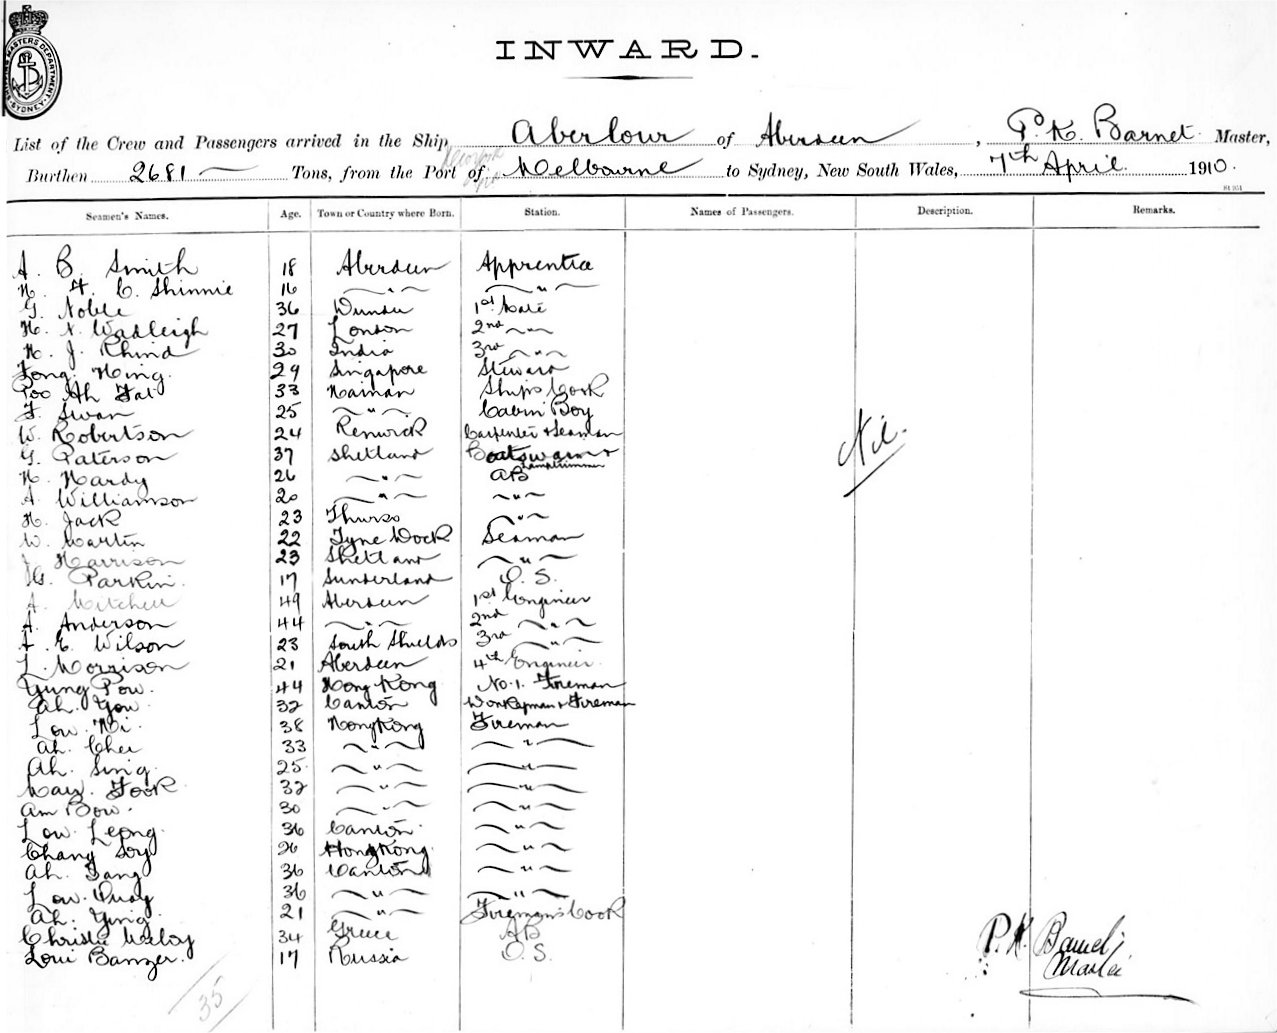 MASTERS DEPARTMENT
SYDNEY
INWARD.
List of the Crew and Passengers arrived in the Ship Aberlour of Aberdeen, P. K. Barnet Master,
New York
Burthen 2681 Tons, from the Port of Melbourne to Sydney, New South Wales, 7th April 1910.
Seamen's Names. Age. Town or Country where Born. Station. Names of Passengers. Description. Remarks.
A. B. Smith 18 Aberdeen Apprentice
H. F. C. Shinnie 16 " "
G. Noble 36 Dundee 1st Mate
H. N. Wadleigh 27 London 2nd "
H. J. Rhind 30 India 3rd "
Fong Hing. 29 Singapore Steward
Poo Ah Fat 33 Hainan Ships Cook
F. Swan 25 " Cabin Boy
W. Robertson 24 Renwick Carpenter & Seaman
Nil.
G. Paterson 37 Shetland Boatswain & Lamptrimmer
H. Hardy 26 " AB
A. Williamson 20 " "
H. Jack 23 Thurso "
W. Martin 22 Tyne Dock Seaman
J. Harrison 23 Shetland "
G. Parkin. 17 Sunderland O. S.
A. Mitchell 49 Aberdeen 1st Engineer
A. Anderson 44 " 2nd "
A. E. Wilson 23 South Shields 3rd "
L. Morrison 21 Aberdeen 4th Engineer.
Yung Pow. 44 Hong Kong No. 1. Fireman
Ah. Yow 32 Canton Donkeyman & Fireman
Low. Ki. 38 Hongkong Fireman
Ah. Chee 33 " "
Ah. Sing. 25 " "
Fook. 32 " "
Am Bow. 30 " "
Low. Leong. 36 Canton. "
Chang Soy 26 Hongkong. "
Ah. Tang 36 Canton "
Low. Quay 36 " "
Ah. Ying. 21 " Fireman's Cook
Christie 34 Greece AB
Loui Banzer. 17 Russia O. S.
P. K. Barnet
Master
35